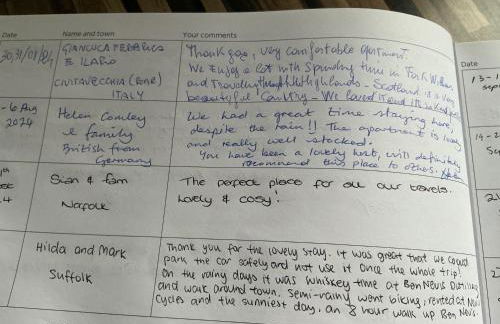 Date Name and town Your comments
30,31/08/24
GIANLUCA FEDERICA
E ILARIO
CIVITAVECCHIA (ROME)
ITALY
Thank you, very comfortable apartment.
We Enjoy a lot with Spending time in Fort William
and Travel in through the highlands - Scotland is a very
beautiful Country - We loved it and
- 6 Aug
2024
Helen Comley
& family
British from
Germany
We had a great time staying here,
despite the rain!! The apartment is lovely
and really well stocked.
You have been a lovely host, will definitely
recommend this place to others.
Sian & fam
Norfolk
The perfect place for all our travels.
Lovely & cosy!
Hilda and Mark
Suffolk
Thank you for the lovely stay. It was great that we could
park the car safely and not use it once the whole trip!
On the rainy days it was whiskey time at Ben Nevis Distillery
and walk around town, semi-rainy went biking, rented at Nevis
cycles and the sunniest day, an 8 hour walk up Ben Nevis.
Date
13-1